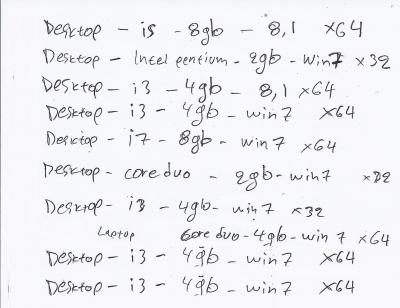 Desktop - i5 - 8gb - 8,1 x64
Desktop - Intel pentium - 2gb - win7 x32
Desktop - i3 - 4gb - 8,1 x64
Desktop - i3 - 4gb - win7 x64
Desktop - i7 - 8gb - win7 x64
Desktop - core duo - 2gb - win7 x32
Desktop - i3 - 4gb - win7 x32
Laptop core duo - 4gb - win7 x64
Desktop - i3 - 4gb - win7 x64
Desktop - i3 - 4gb - win7 x64